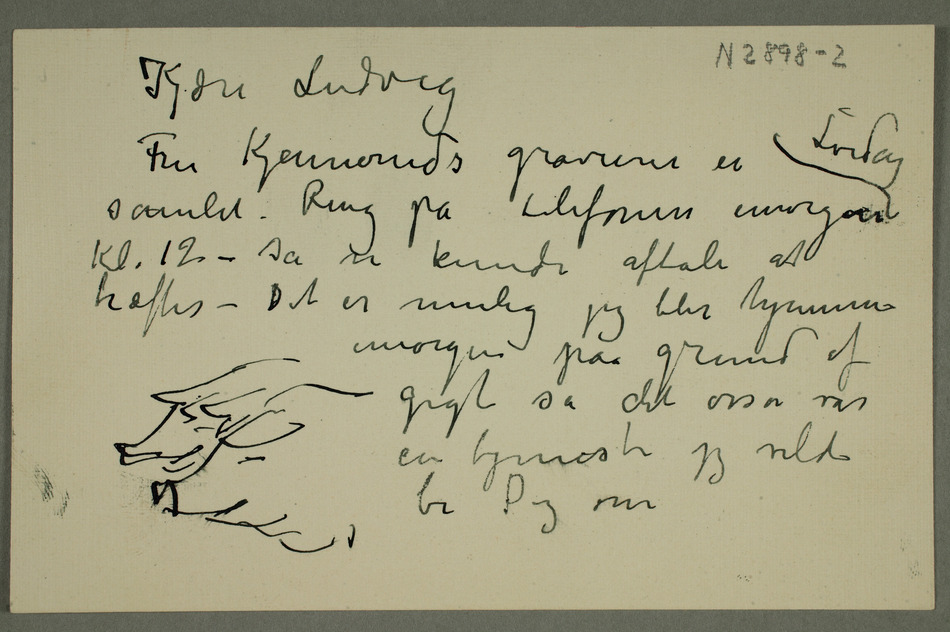 N 2898-2
Kjære Ludvig
Fru Kjenneruds gravurer er Lørdag
samlet. Ring på telefonen imorgen
Kl. 12 – så vi kunde aftale at
træffes – Det er mulig jeg blir hjemme
imorgen paa grund af
gigt så det osså var
en tjeneste jeg vilde
be Dig om